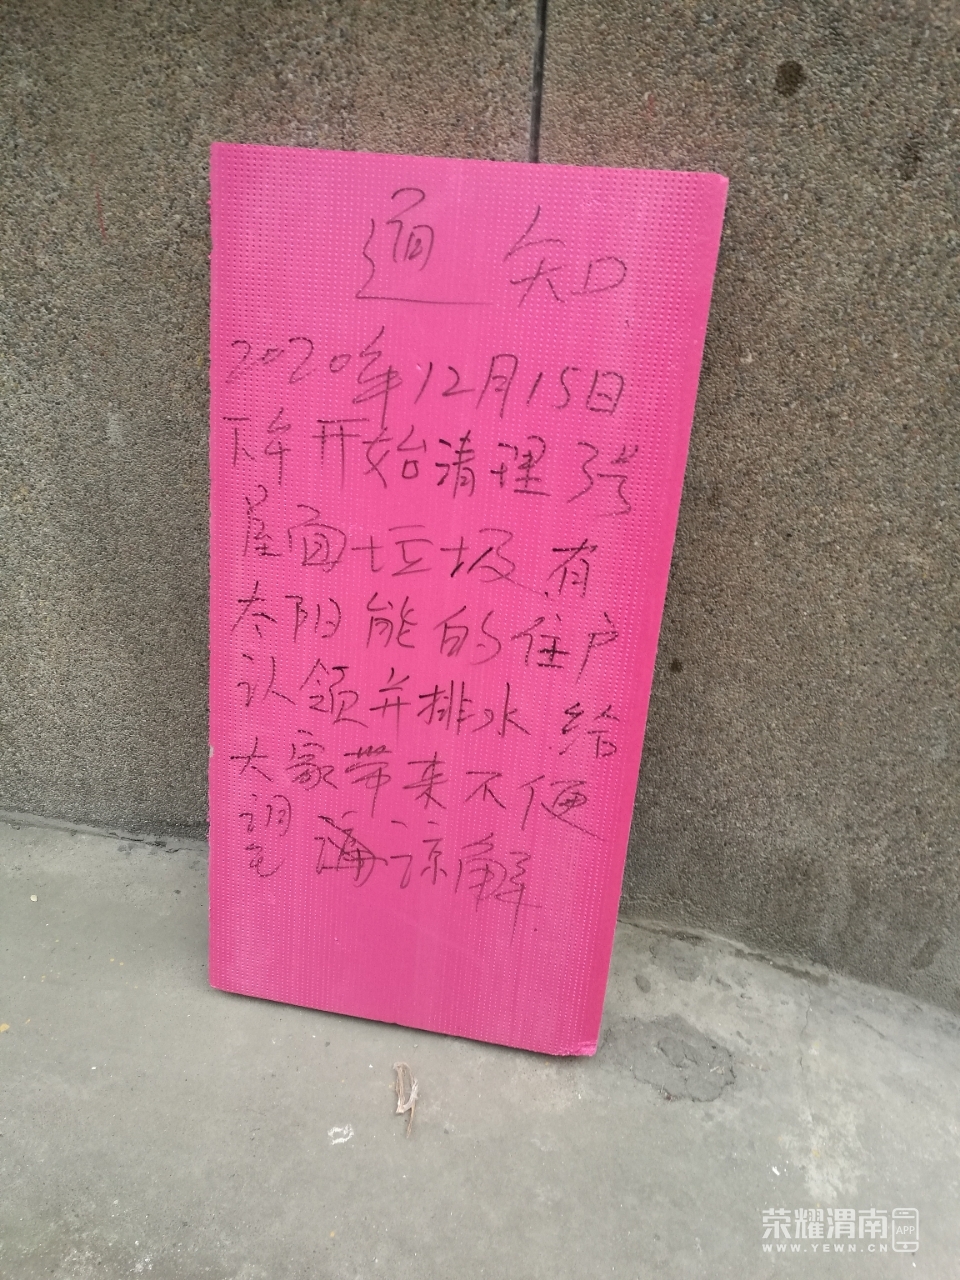 通知
2020年12月15日
下午开始清理3号
屋面垃圾有
太阳能的住户
认领并排水给
大家带来不便
望谅解
荣耀渭南APP
WWW.YEWN.CN